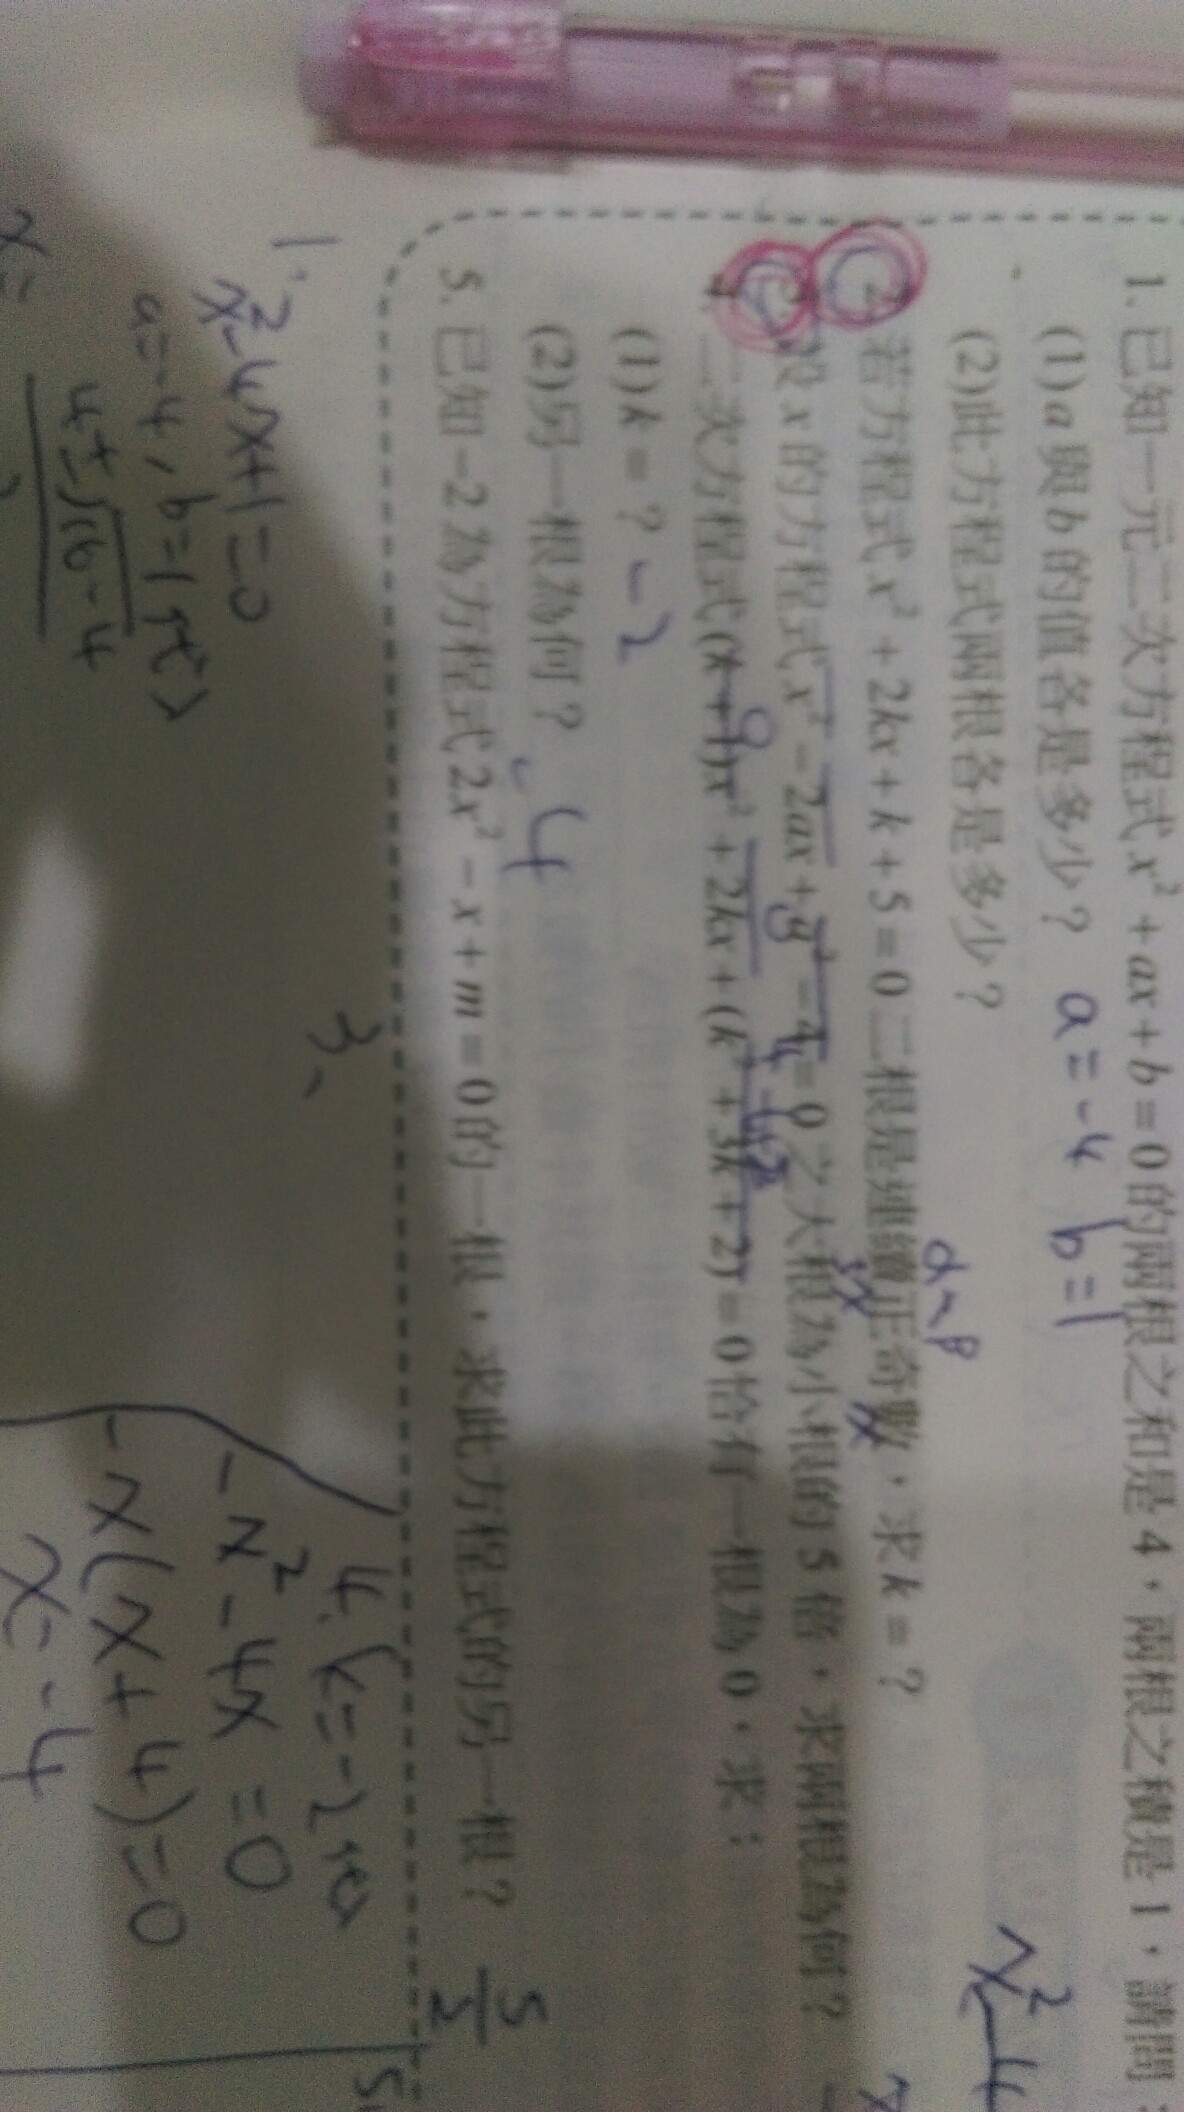 1. 已知一元二次方程式 x² + ax + b = 0 的兩根之和是 4，兩根之積是 1，請問：
(1) a 與 b 的值各是多少？ a=-4 b=1
(2) 此方程式兩根各是多少？
x²-4
2. 若方程式 x² + 2kx + k + 5 = 0 二根是連續正奇數，求 k = ？
α、β
設 x 的方程式 x² - 2ax + a² - 4 = 0 之大根為小根的 5 倍，求兩根為何？
5x x
4. 二次方程式 (k + 1)x² + 2kx + (k² + 3k + 2) = 0 恰有一根為 0，求：
(1) k = ？ -2
(2) 另一根為何？ -4
5. 已知 -2 為方程式 2x² - x + m = 0 的一根，求此方程式的另一根？ 5/2
1.
x²-4x+1=0
a=-4, b=1 代入
x= 4±√16-4
3、
4. k=-2代入
-x²-4x=0
-x(x+4)=0
x=-4
5.